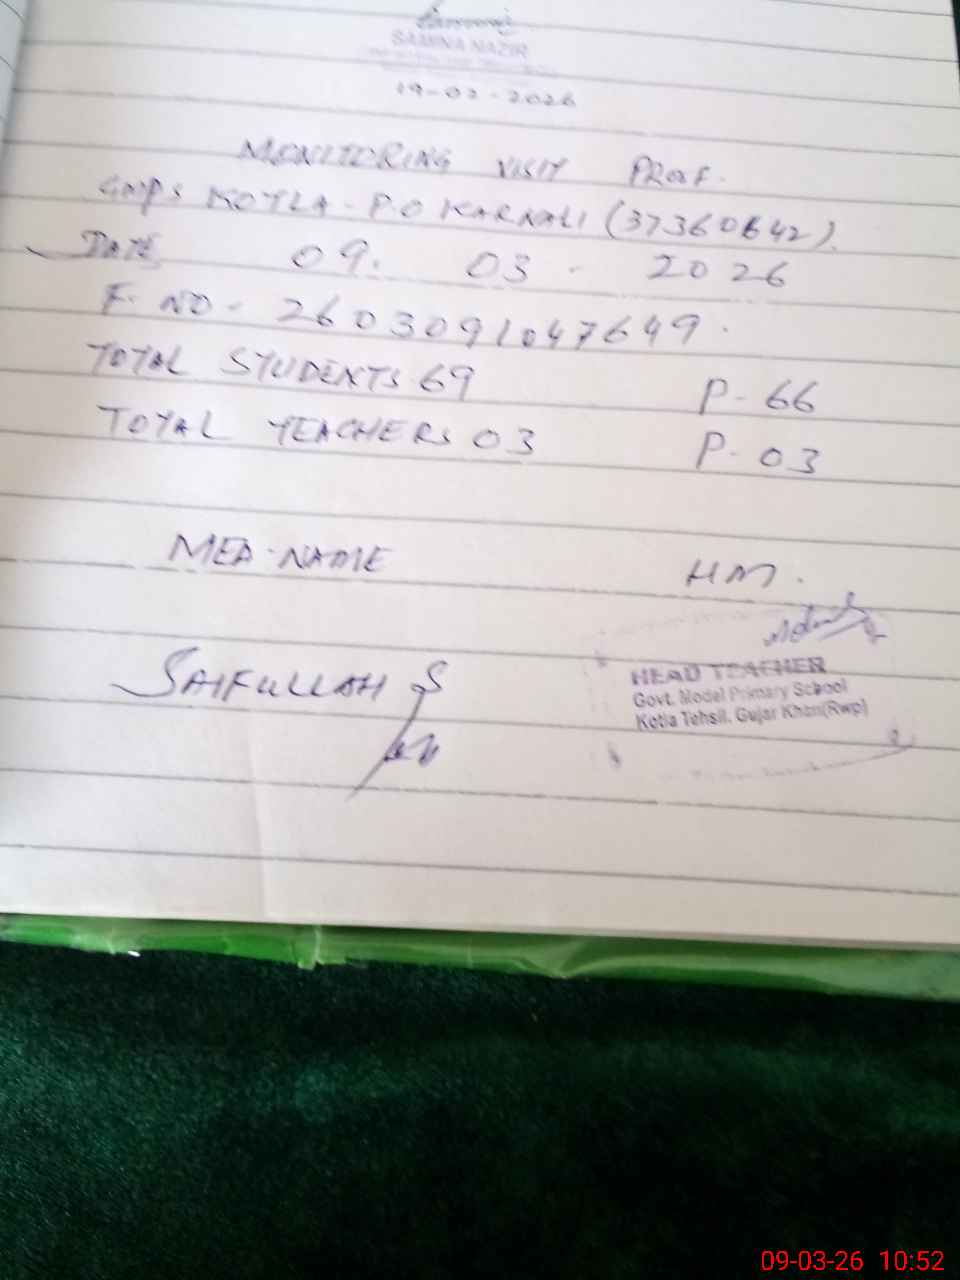 SAMINA NAZIR
19-02-2026
MONITORING VISIT PROF.
GMPS KOTLA - P.O KARNALI (37360642).
DATE 09. 03 - 2026
F. NO - 2603091047649.
TOTAL STUDENTS 69 P- 66
TOTAL TEACHERS 03 P- 03
MEA-NAME HM.
SAIFULLAH
HEAD TEACHER
Govt. Model Primary School
Kotla Tehsil. Gujar Khan(Rwp)
09-03-26 10:52